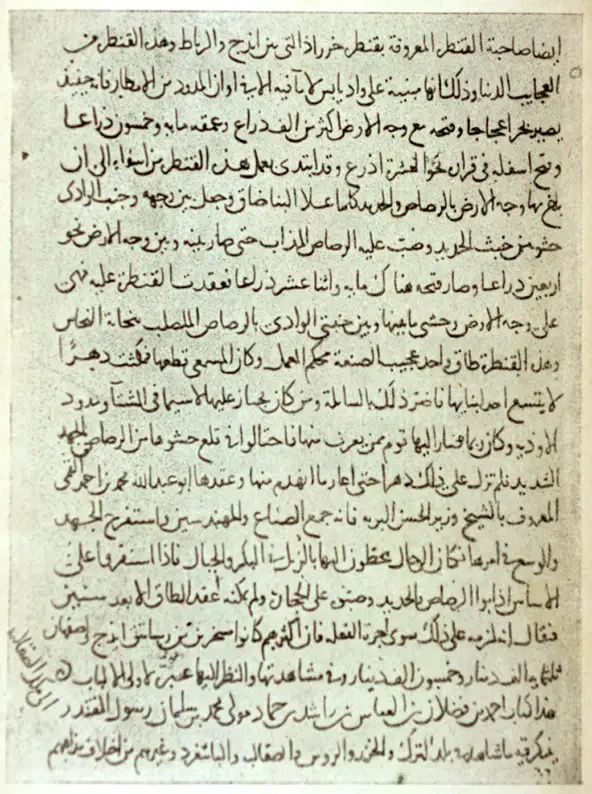 ايضا صاحبة القنطرة المعروفة بقنطرة خرزاذ التي بين ايذج والرباط وهذه القنطرة من
العجايب الدنيا وذلك انها مبنية على واد يابس لا ما فيه الا في اوان المدود من الامطار فانه حينئذ
يصير بحرا عجاجا وفتحه مع وجه الارض اكثر من الف ذراع وعمقه مايه وخمسون ذراعا
وفتح اسفله في قراره نحو العشرة اذرع وقد ابتدى بعمل هذه القنطرة من اسفله الى ان
بلغ بها وجه الارض بالرصاص والحديد كلما علا البنا ضاق وجعل بين وجهه وجنب الوادى
حشو من خبث الحديد وصب عليه الرصاص المذاب حتى صار بينه وبين وجه الارض نحو
اربعين ذراعا وصار فتحه هناك مايه واثنا عشر ذراعا فعقدت القنطرة عليه فهى
على وجه الارض وحشى ما بينها وبين جنبتي الوادى بالرصاص المصلب بنحاتة النحاس
وهذه القنطرة طاق واحد عجيب الصنعة محكم العمل وكان المسمعى قطعها فمكثت دهرا
لا يتسع احد لبنايها فاضر ذلك بالسابلة ومن كان يجتاز عليها لاسيما في الشتآ ومدود
الاوديه وكان ربما صار اليها قوم ممن يقرب منها فاحتالوا في قلع حشوها من الرصاص بالجهد
الشديد فلم تزل على ذلك دهرا حتى اعاد ما انهدم منها وعقدها ابو عبدالله محمد بن احمد القمى
المعروف بالشيخ وزير الحسن البويه فانه جمع الصناع والمهندسين واستفرغ الجهد
والوسع في امرها فكان الرجال يحطون اليها بالزبل في البكر والحبال فاذا استقروا على
الاساس اذابوا الرصاص بالحديد وصبوه على الحجارة ولم يمكنه عقد الطاق الا بعد سنتين
فيقال انه لزمه على ذلك سوى اجرة الفعلة فان اكثرهم كانوا مسخرين من رساتيق ايذج واصفهان
ثلثمايه الف دينار وخمسون الف دينار وفي مشاهدتها والنظر اليها عبرة لاولى الالباب
هذا كتاب احمد بن فضلان بن العباس بن راشد بن حماد مولى محمد بن سلمان رسول المقتدر
الى ملك الصقالبة
يذكر فيه ما شاهد في بلد الترك والخزر والروس والصقالبة والباشغرد وغيرهم من اختلاف مذاهبهم